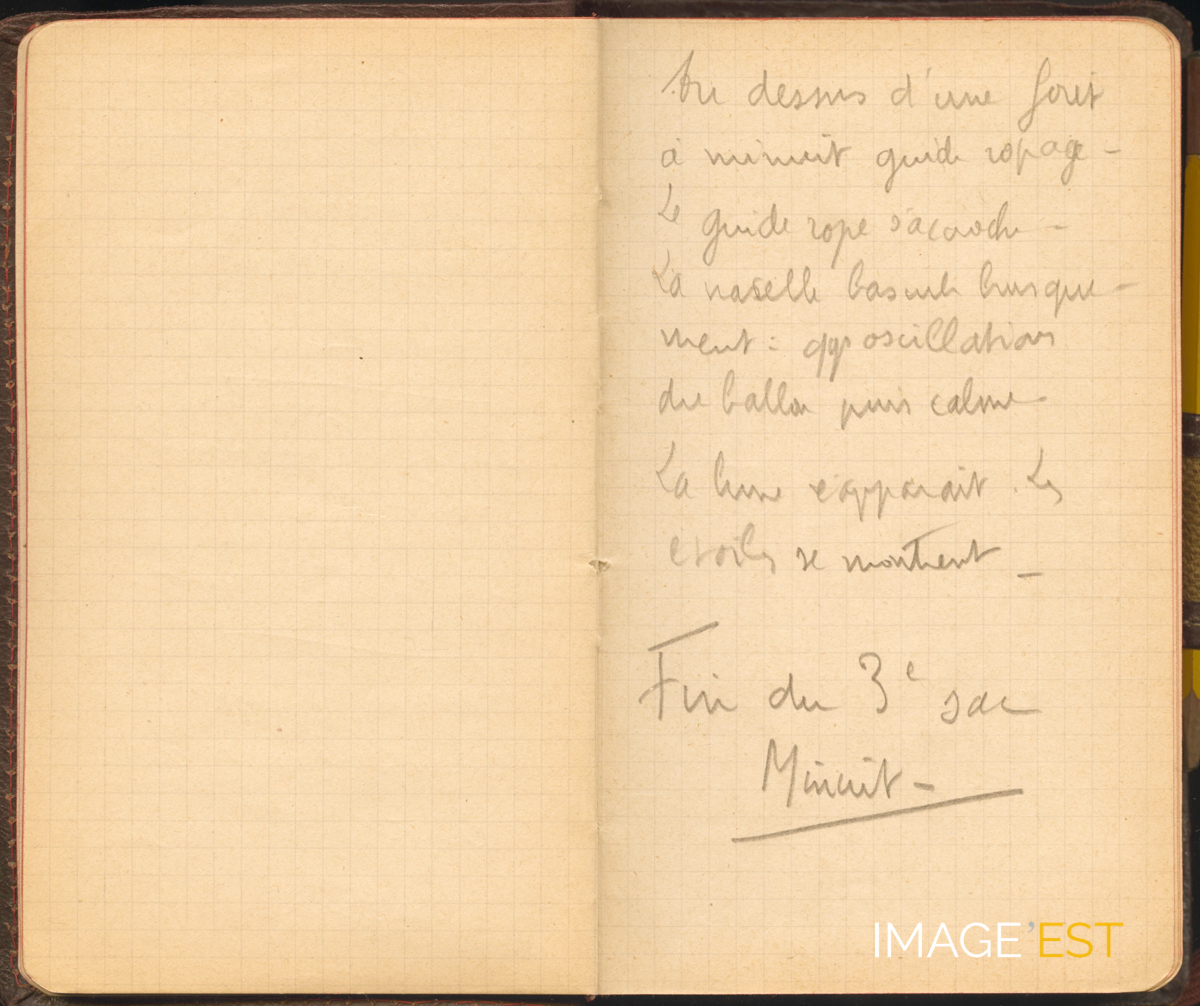 Au dessus d'une foret
à minuit guide ropage -
Le guide rope s'accroche -
La naselle bascule brusque-
ment : qqs oscillations
du ballon puis calme
La lune apparait. Les
etoiles se montrent _
Fin du 3e sac
Minuit -
IMAGE'EST